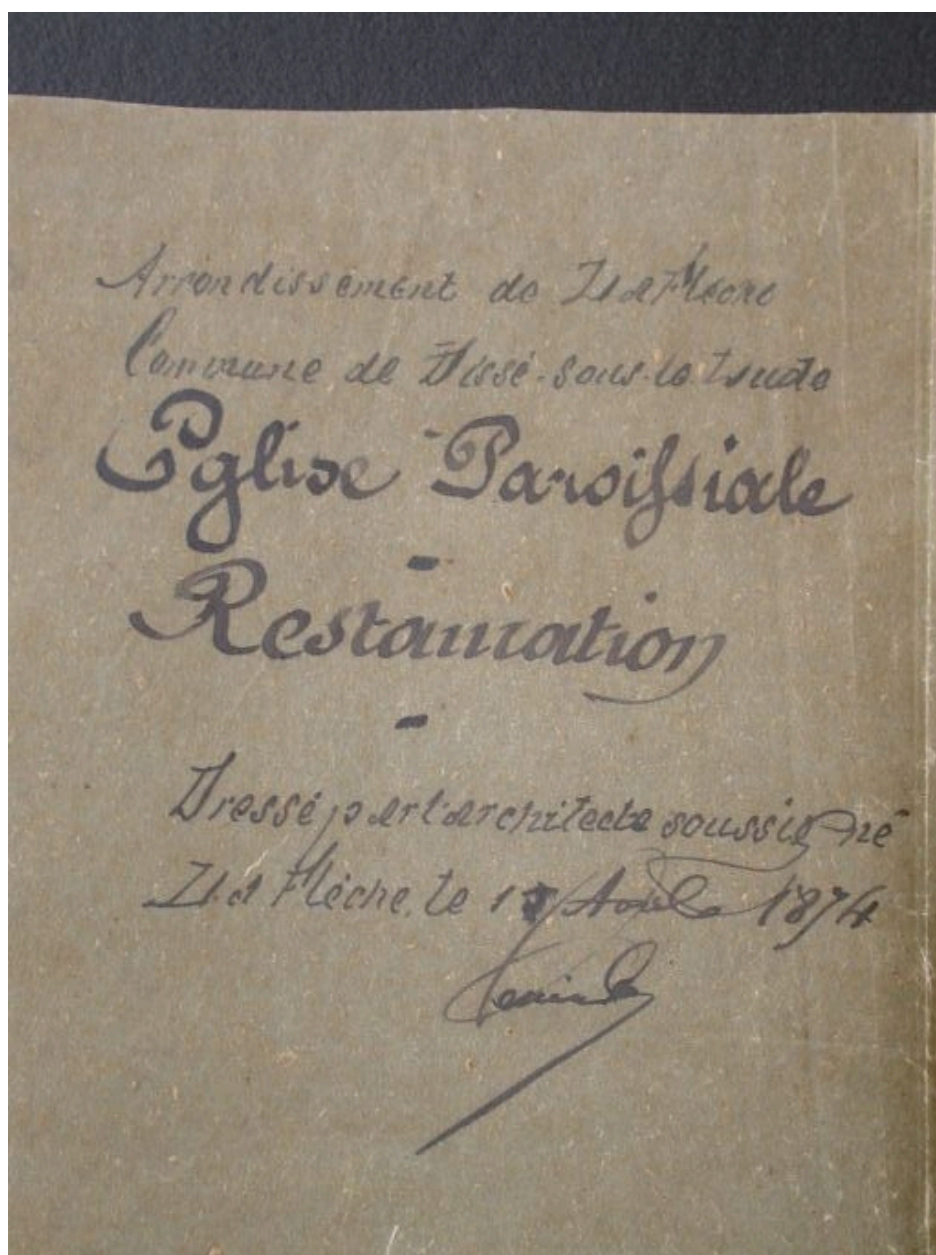 Arrondissement de La Flèche
Commune de Dissé-sous-le-Lude
Eglise Paroissiale
-
Restauration
-
Dressé par l'architecte soussigné
La Flèche, le Août 1874